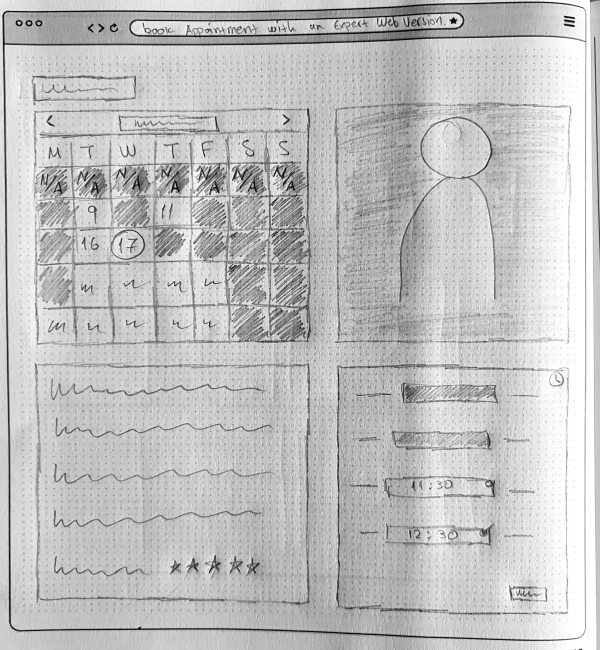 book Appointment with an Expert Web Version.
M T W T F S S
N/A N/A N/A N/A N/A N/A N/A
9 11
16 17
11:30
12:30